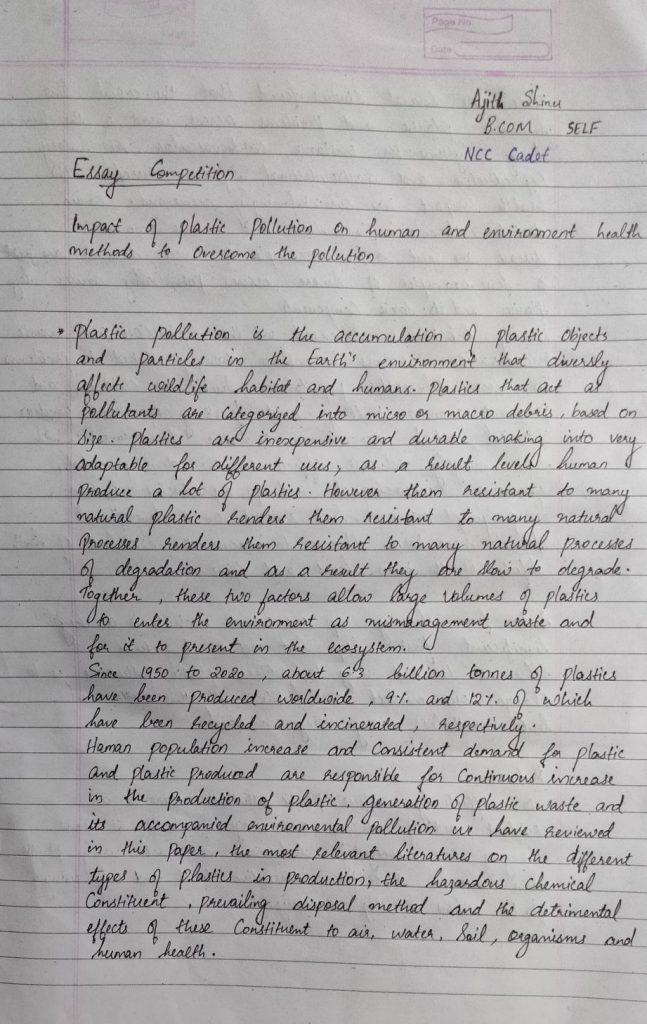 Page No.
Date
Ajith Shinu
B.COM SELF
NCC Cadet
Essay Competition
Impact of plastic pollution on human and environment health
methods to overcome the pollution
* Plastic pollution is the accumulation of plastic objects
and particles in the Earth's environment that diversly
affects wildlife habitat and humans. Plastics that act as
pollutants are categorized into micro or macro debris, based on
size. Plastics are inexpensive and durable making into very
adaptable for different uses, as a result levels human
produce a lot of plastics. However them resistant to many
natural plastic renders them resistant to many natural
processes renders them resistant to many natural processes
of degradation and as a result they are slow to degrade.
Together, these two factors allow large volumes of plastics
to enter the environment as mismanagement waste and
for it to present in the ecosystem.
Since 1950 to 2020, about 6.3 billion tonnes of plastics
have been produced worldwide, 9% and 12% of which
have been recycled and incinerated, respectively.
Haman population increase and consistent demand for plastic
and plastic produced are responsible for continuous increase
in the production of plastic, generation of plastic waste and
its accompanied environmental pollution we have reviewed
in this paper, the most relevant literatures on the different
types of plastics in production, the hazardous chemical
Constituent, prevailing disposal method and the detrimental
effects of these Constituent to air, water, Soil, organisms and
human health.